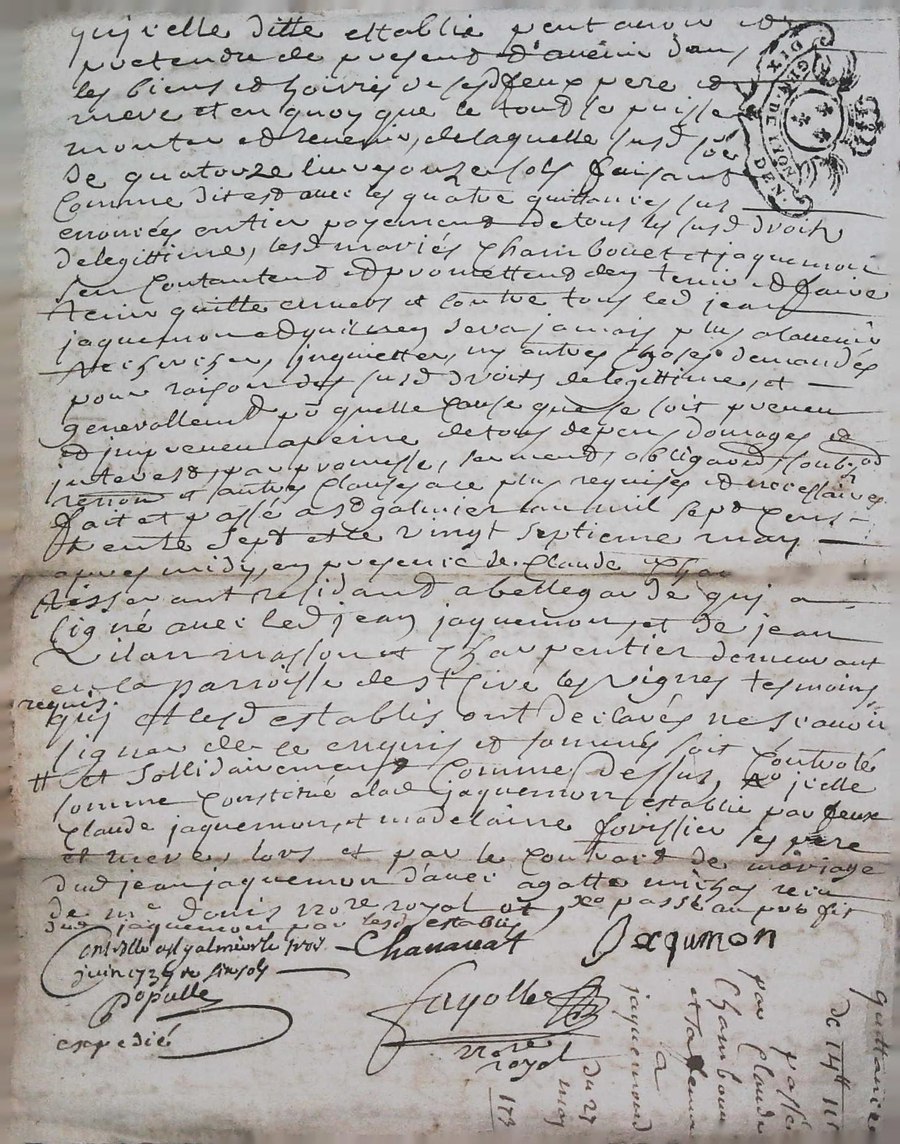 qu'jcelle ditte establie peut avoir et
pretendre de present et d'avenir dans
les biens et hoiries de sesd feux pere et
mere et en quoy que le tout se puisse
monter et revenir, de laquelle susd somme
de quatorze livres onze sols faisant
Comme dit est avec les quatre quittances sus
enoncées entier payement de tous les susd droits
de legittime, lesd mariés Chambouet et jaquemon
sen Contantent et promettend den tenir et faire
tenir quitte envers et contre tous led jean
jaquemon et quil n'en sera jamais plus alavenir
recherches, jnquietter, ny autres choses demandés
pour raison des susd droits delegittime, et
generallement po quelle cause que se soit preveu
et impreveu apeine de tous depens domages et
jnterest, par promesse, serment, obligaon, soubson
renon et autres Clauses a ce plus requises et necessaires
fait et passé a sd galmier an mil sept Cens
trente Sept et le vingt septieme may
apres midy, en presence de Claude
Tisserant residand a bellegarde qui a
signé avec led jean jaquemon, et de jean
masson et Charpentier demeurant
en la parroisse de st Cire les vignes tesmoins
requis
qui et lesd establis ont declarés ne scavoir
signer de ce enquis et sommés soit Controlé
# et sollidairement Comme dessus, jcelle
somme Constitué alad jaquemon establie par feux
Claude jaquemon, et madelaine forissier ses pere
et mere, lors et par le Contract de mariage
dud jean jaquemon d'avec agatte michas receu
de me donis nore royal et, passé au profit
dud jaquemon par lesd establis
Controllé a st galmier le troi
juin 1737 re six sols
Chananat
Jaqumon
Populle
expedié
fayolle
nore
royal
GEN. DE LYON
DIX
quittance
de 14tt 11s
passée
par Claude
Chambouet
et sa feme
a
jaquemond
du 27
may
173